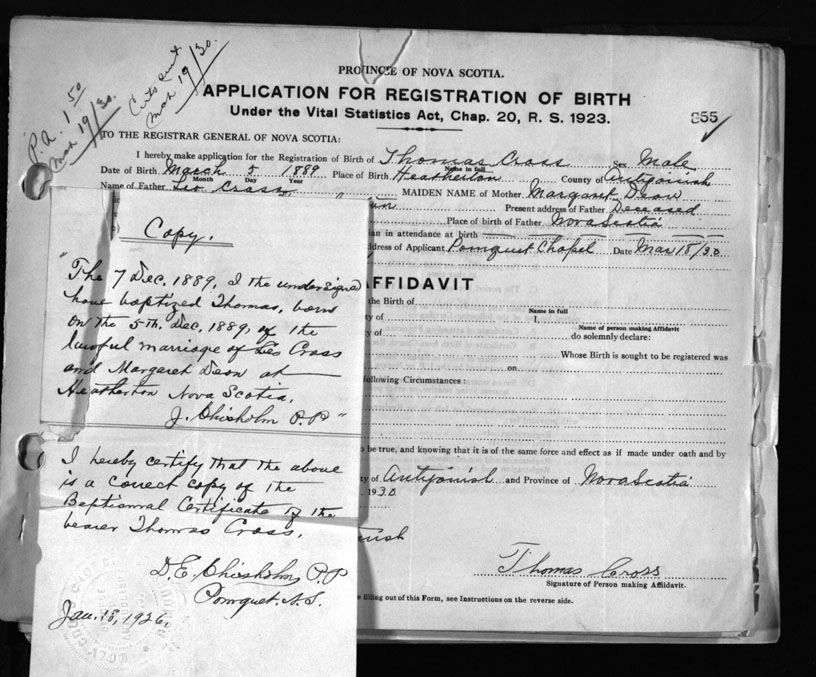 P.A. 1.50
Mar 19/30.
Certs sent
Mar 19/30.
PROVINCE OF NOVA SCOTIA.
APPLICATION FOR REGISTRATION OF BIRTH
Under the Vital Statistics Act, Chap. 20, R. S. 1923.
855
TO THE REGISTRAR GENERAL OF NOVA SCOTIA:
I hereby make application for the Registration of Birth of Thomas Cross Sex Male
Name in full
Date of Birth March 5 1889 Place of Birth Heatherton County of Antigonish
Month Day Year
Name of Father Leo Cross MAIDEN NAME of Mother Margaret Deon
Present address of Father Deceased
Place of birth of Father Nova Scotia
in attendance at birth
Address of Applicant Pomquet Chapel Date Mar 18/30
AFFIDAVIT
the Birth of
Name in full
of I,
Name of person making Affidavit
of do solemnly declare:
Whose Birth is sought to be registered was
on
following Circumstances:
be true, and knowing that it is of the same force and effect as if made under oath and by
of Antigonish and Province of Nova Scotia
1930
Thomas Cross
Signature of Person making Affidavit.
filling out of this Form, see Instructions on the reverse side.
Copy.
"The 7 Dec. 1889, I the undersigned
have baptized Thomas, born
on the 5th. Dec. 1889, of the
lawful marriage of Leo Cross
and Margaret Deon at
Heatherton Nova Scotia.
J. Chisholm P.P"
I hereby certify that the above
is a correct copy of the
Baptismal Certificate of the
bearer Thomas Cross.
D.E. Chisholm P.P
Pomquet. N.S.
Jan. 18, 1926.